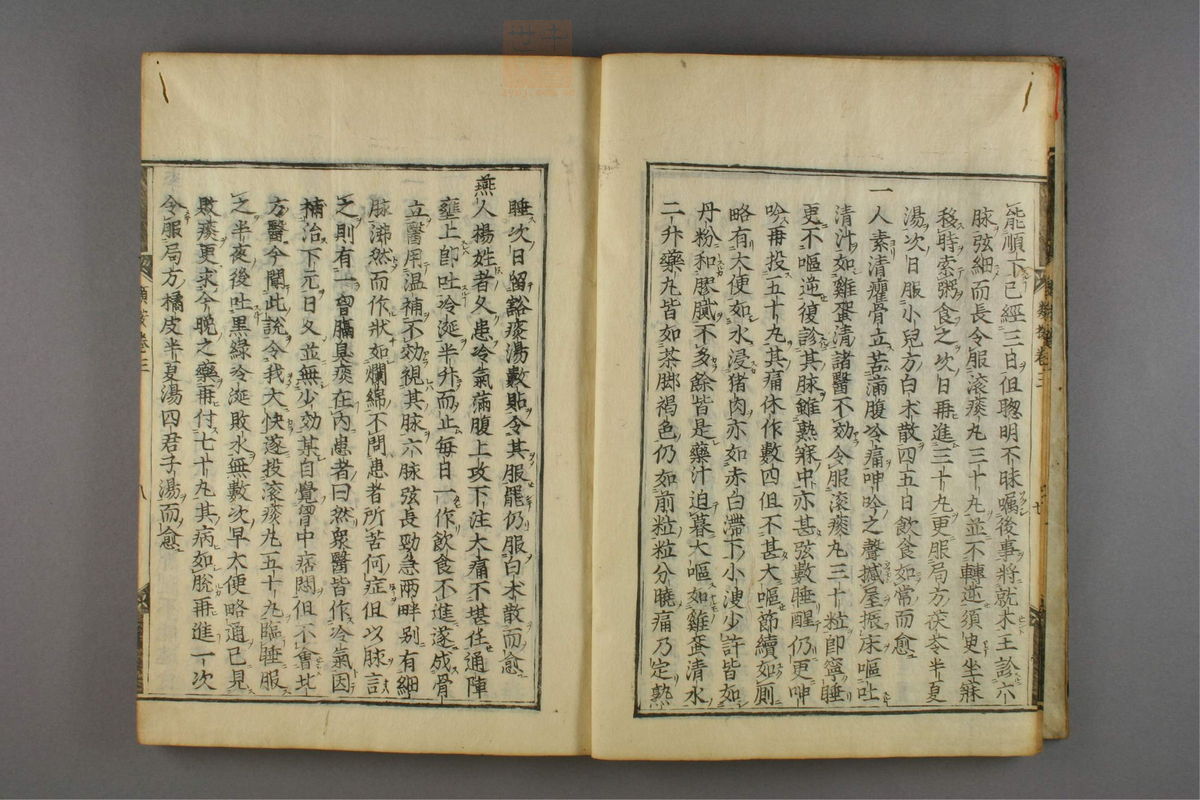 能順下已經三日但聰明不昧囑後事將就木王診六
脉弦細而長令服滾痰丸三十丸並不轉逆須臾坐寐
移時索粥食之次日再進三十丸更服局方茯苓半夏
湯次日服小兒方白术散四五日飲食如常而愈
一人素清癯骨立苦滿腹冷痛呻吟之聲撼屋振床嘔吐
清汁如雞蛋清諸醫不効令服滾痰丸三十粒即寧睡
更不嘔逆復診其脉雖熟寐中亦甚弦數睡醒仍更呻
吟再投五十丸其痛休作數四但不甚大嘔節續如厠
略有大便如水浸猪肉亦如赤白滯下小溲少許皆如
丹粉和膠膩不多餘皆是藥汁迫暮大嘔如雞蛋清水
二升藥丸皆如茶脚褐色仍如前粒粒分曉痛乃定熟
睡次日留豁痰湯數貼令其服罷仍服白术散而愈
燕人楊姓者久患冷氣滿腹上攻下注大痛不堪任通陣
壅上即吐冷涎半升而止每日一作飲食不進遂成骨
立醫用温補不効視其脉六脉弦長勁急兩畔別有細
脉沸然而作狀如爛綿不問患者所苦何症但以脉言
之則有一胷膈臭痰在內患者曰然衆醫皆作冷氣因
補治下元日久並無少効某自覺胷中痞悶但不會此
方醫今聞此說令我大快遂投滾痰丸五十丸臨睡服
之半夜後吐黑綠冷涎敗水無數次早大便略通已見
敗痰更求今晚之藥再付七十丸其病如脫再進一次
令服局方橘皮半夏湯四君子湯而愈